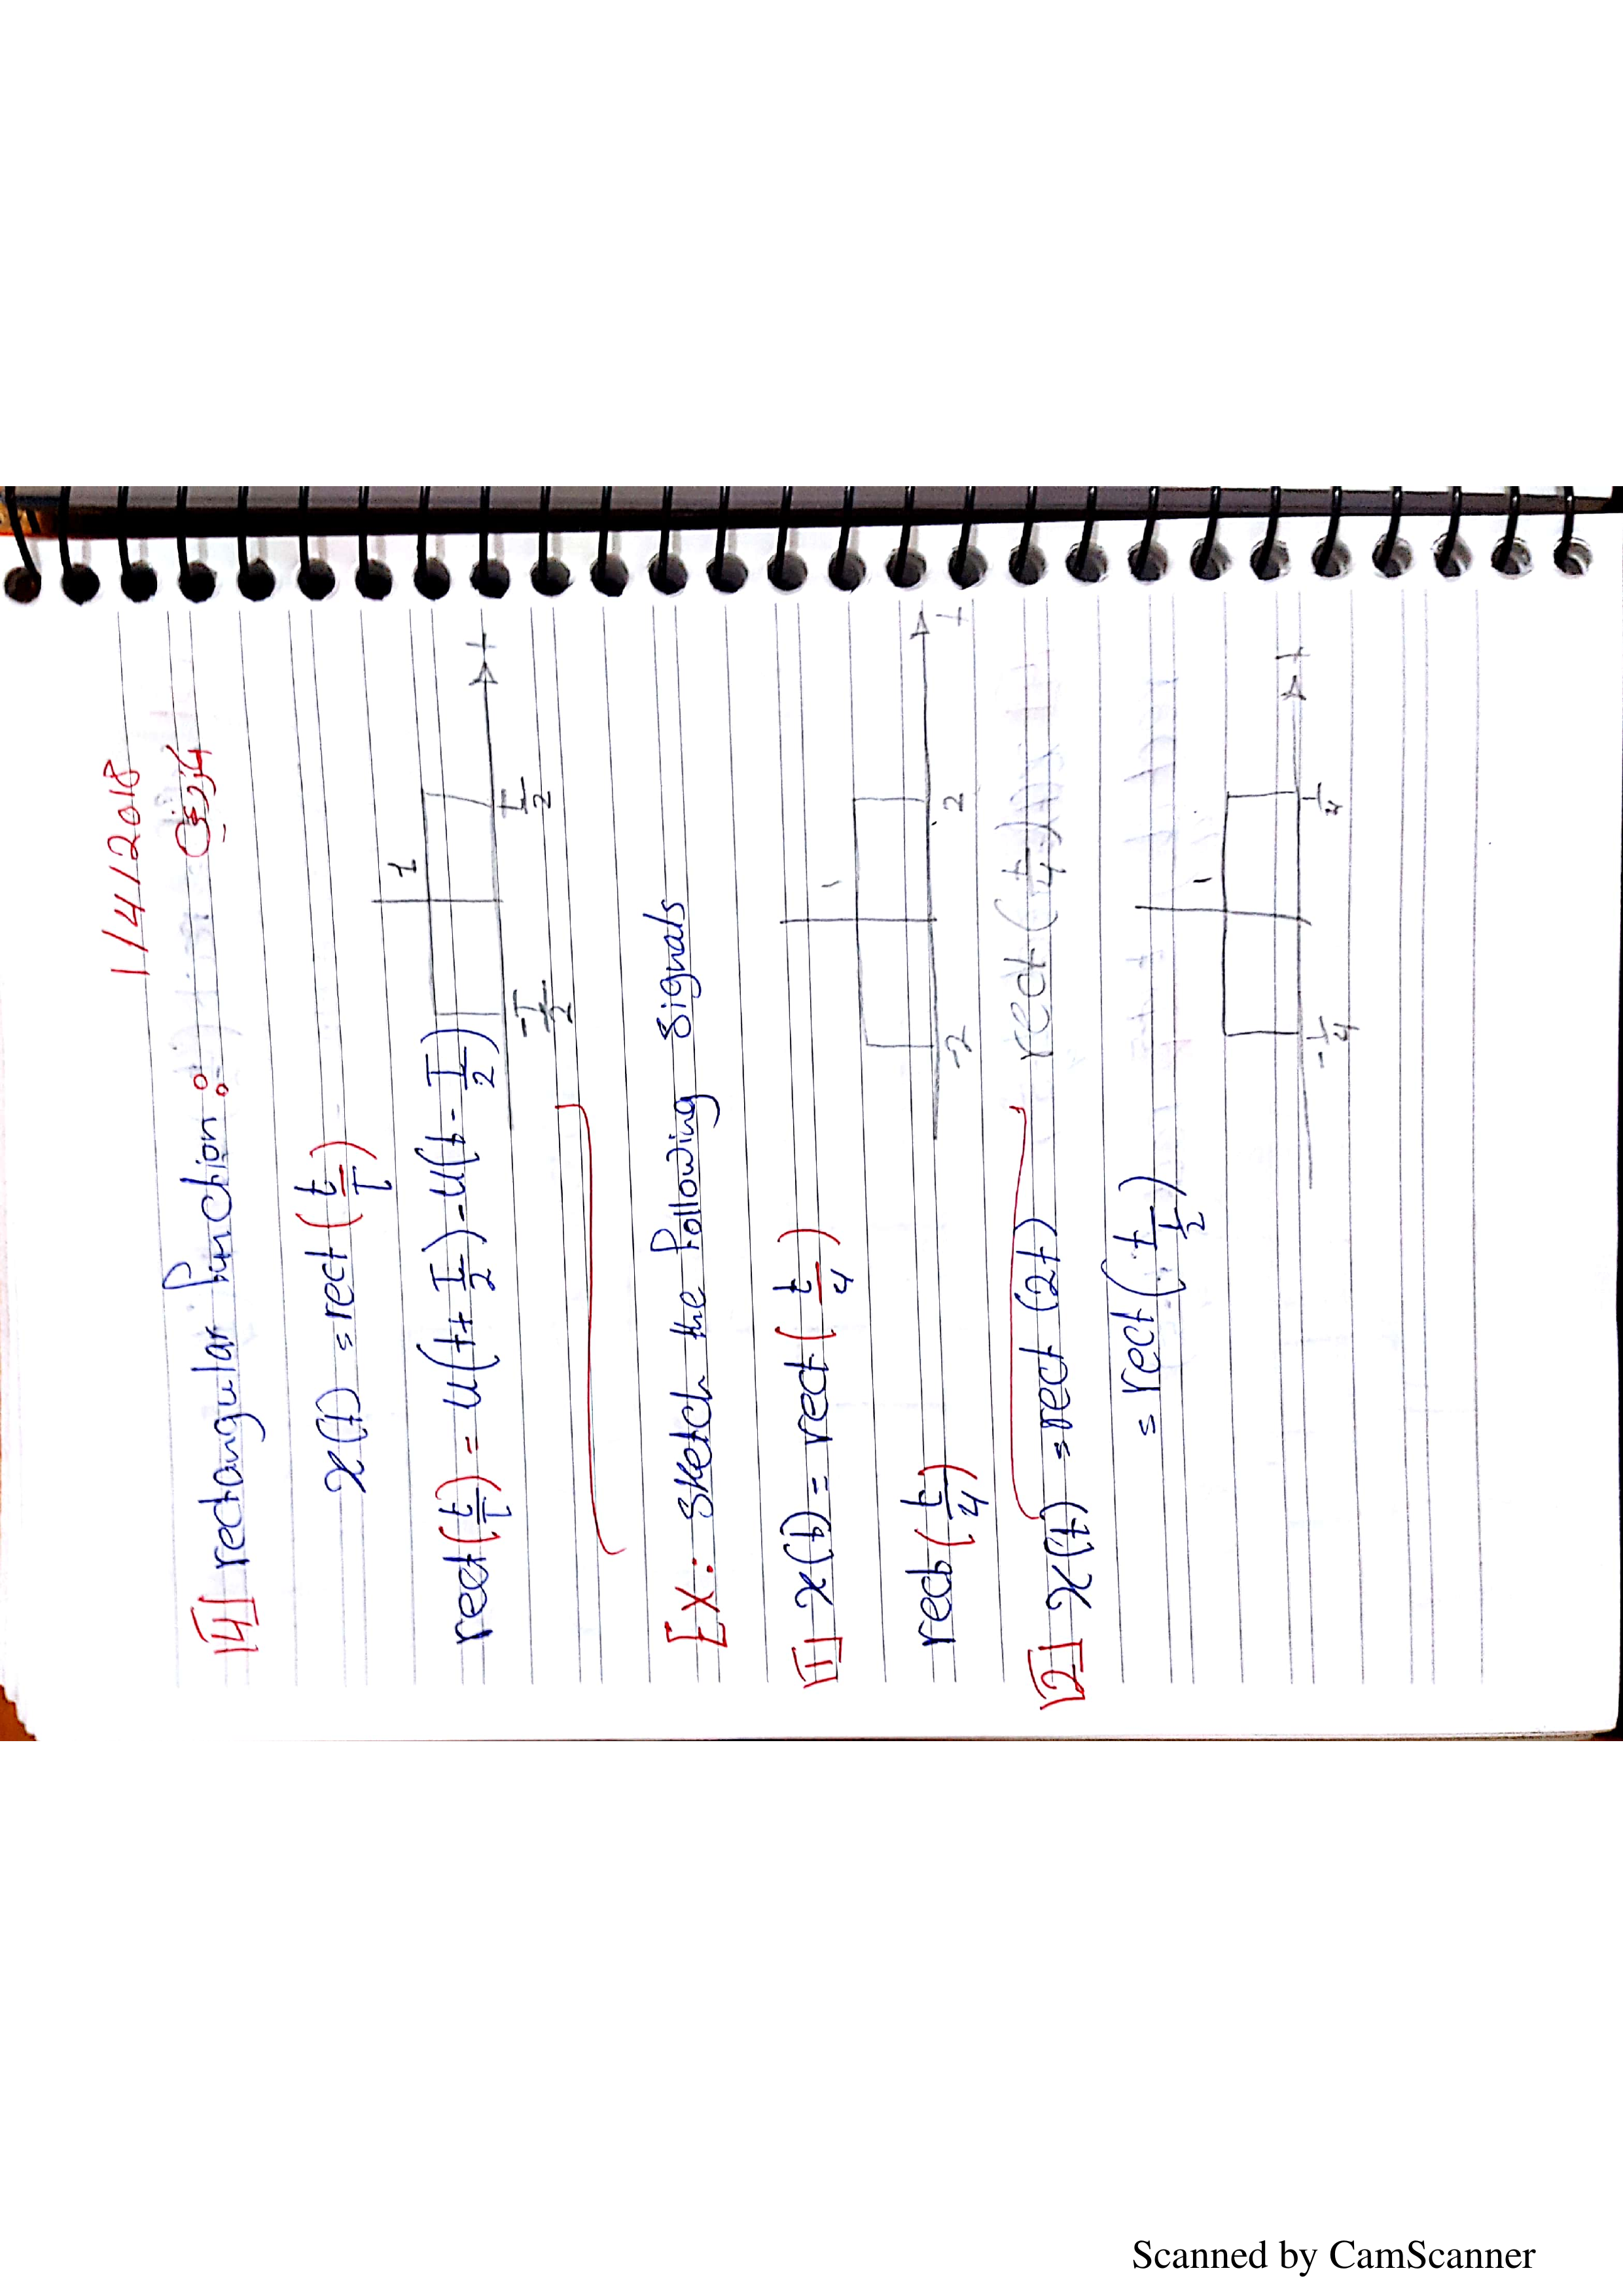 1/4/2018
[4] rectangular function :
x(t) = rect(t/T)
1
rect(t/T) = u(t+T/2)-u(t-T/2)
-T/2 T/2 t
Ex: Sketch the following signals
[1] x(t) = rect(t/4)
1
rect(t/4)
-2 2 t
[2] x(t) = rect(2t)
rect(t/4)
= rect(t/½)
1
-1/4 1/4 t
Scanned by CamScanner